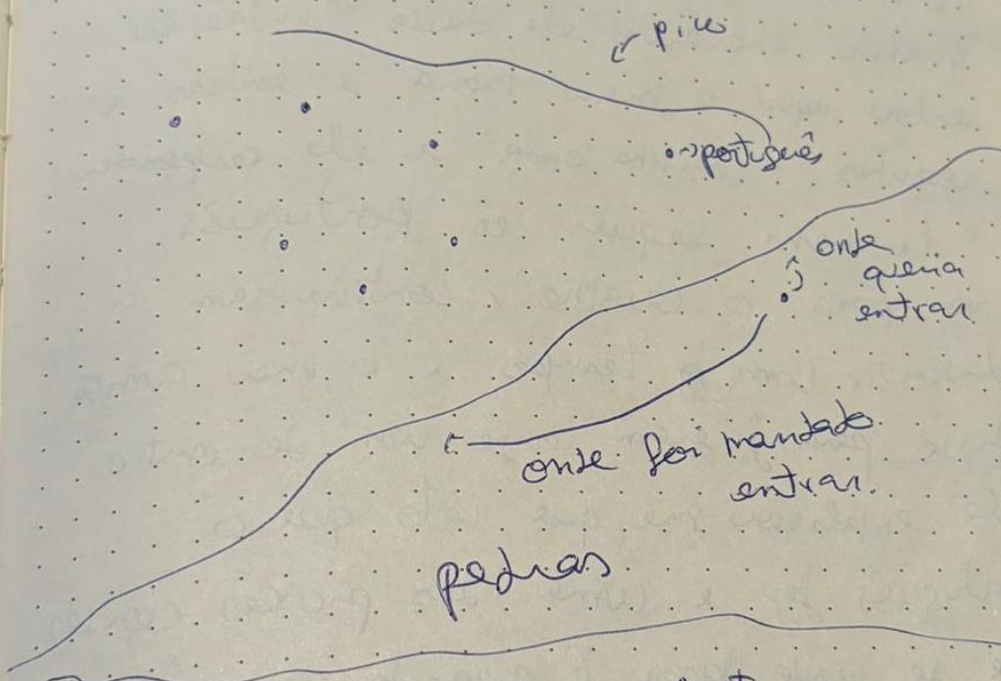 pico
português
onde
queria
entrar
onde foi mandado
entrar.
pedras